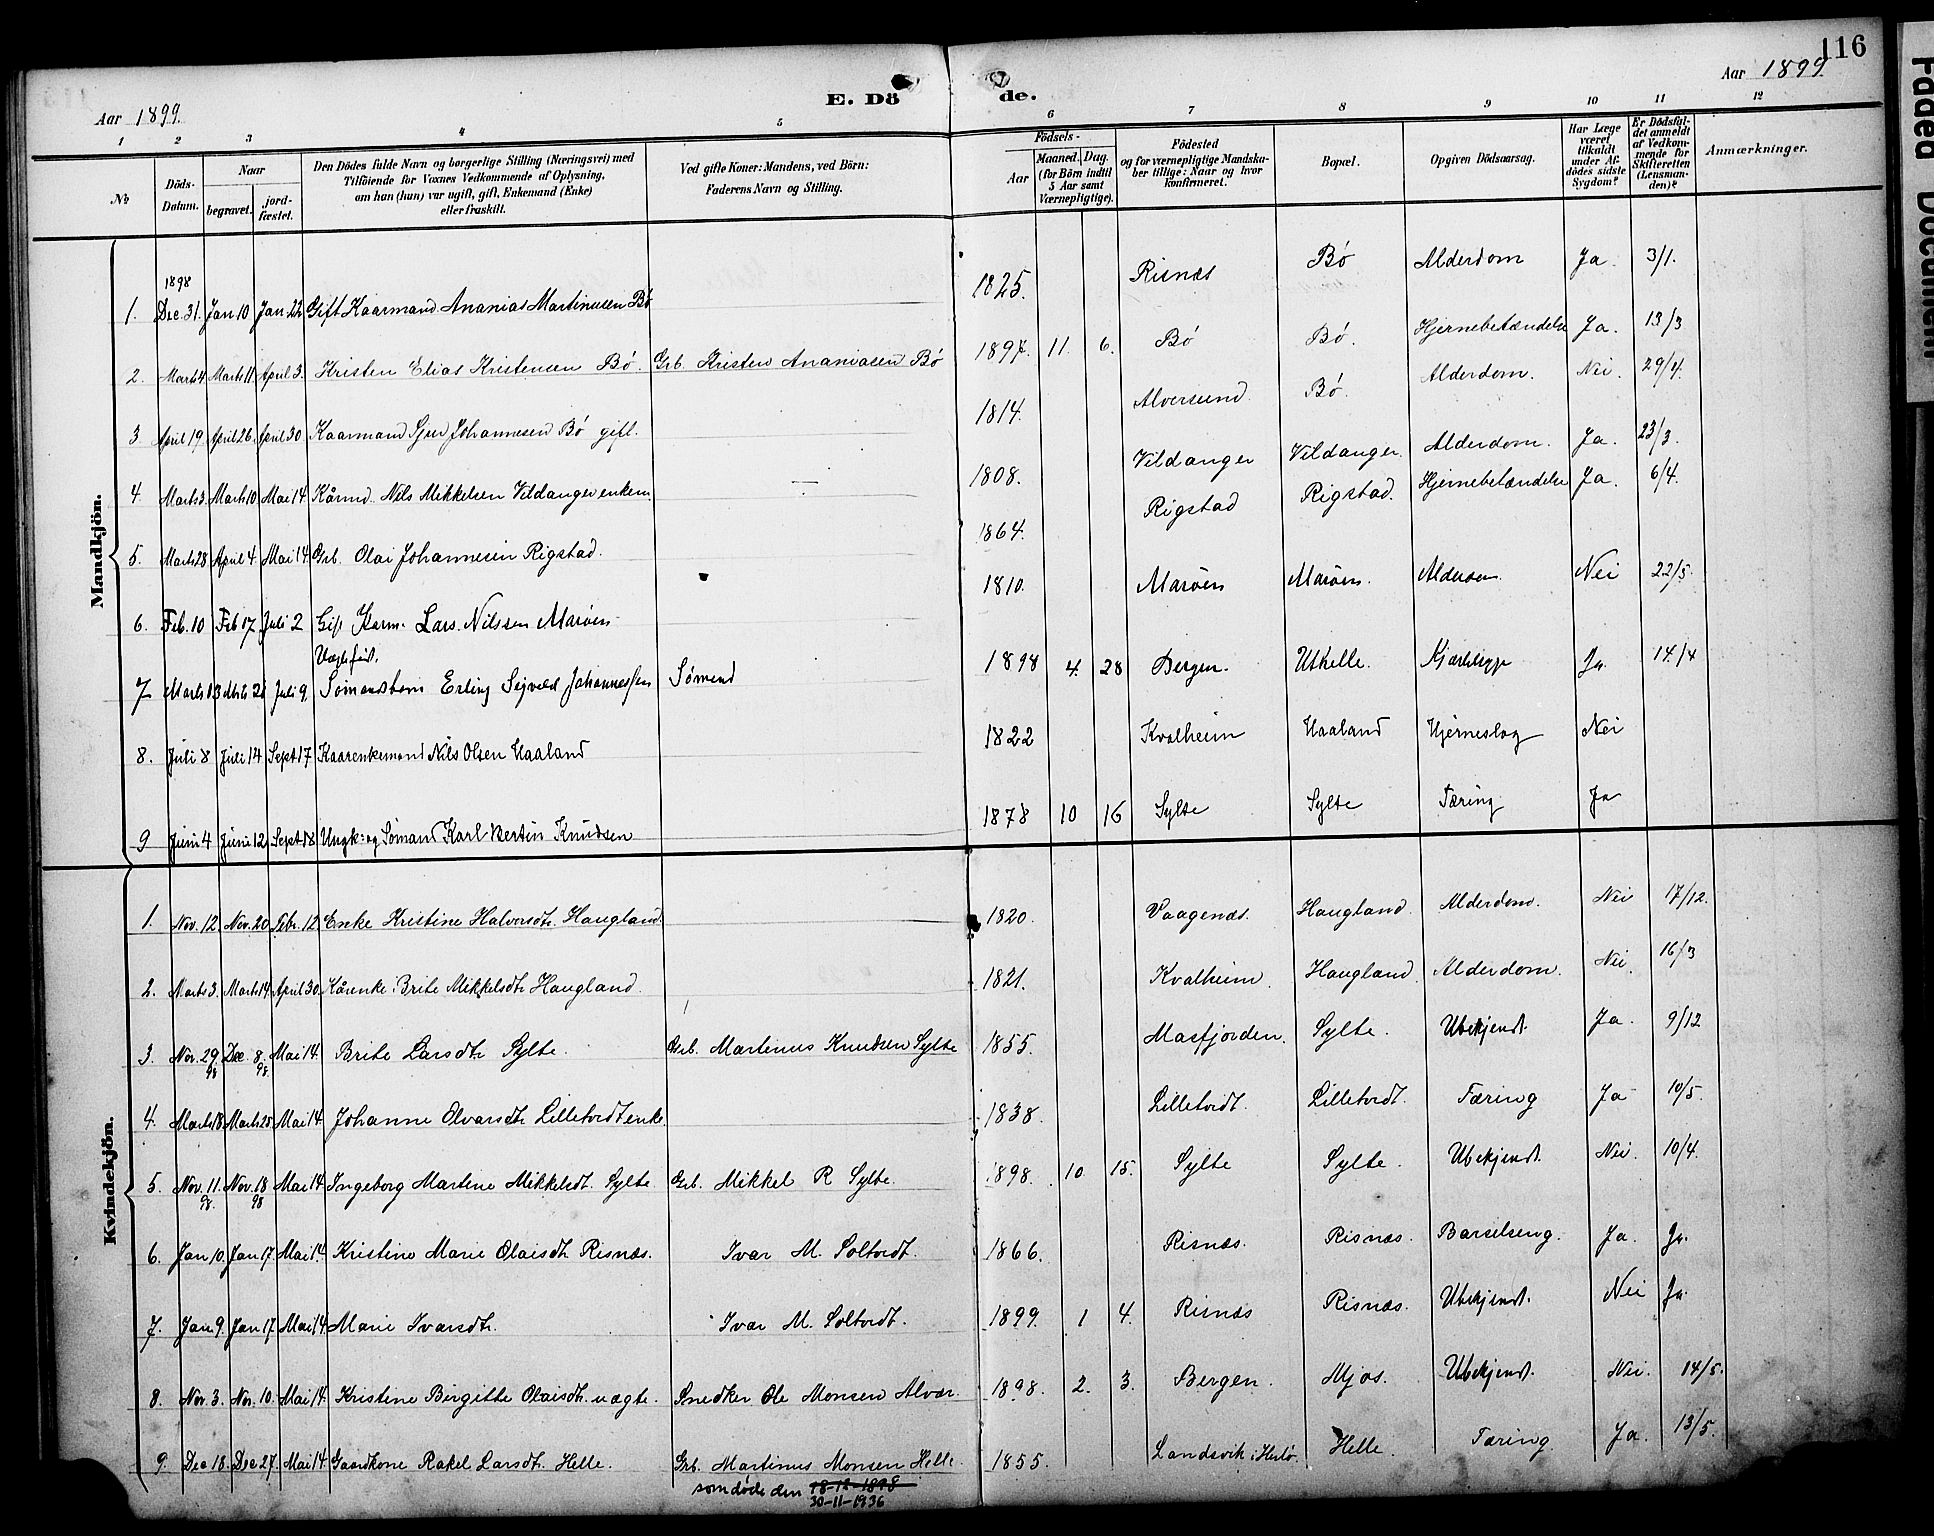 116
Aar 1899.
E. Dö de.
Aar 1899
1 2 3 4 5 6 7 8 9 10 11 12
No
Döds-Datum.
Naar
begravet.
jord-fæstet.
Den Dödes fulde Navn og borgerlige Stilling (Næringsvei) med
Tilföiende for Voxnes Vedkommende af Oplysning,
om han (hun) var ugift, gift, Enkemand (Enke)
eller fraskilt.
Ved gifte Koner: Mandens, ved Börn:
Faderens Navn og Stilling.
Födsels-
Aar
Maaned. Dag.
(for Börn indtil
5 Aar samt
Værnepligtige).
Födested
og for værnepligtige Mandska-
ber tillige: Naar og hvor
konfirmeret.
Bopæl.
Opgiven Dödsaarsag.
Har Læge
været
tilkaldt
under Af-
dödes sidste
Sygdom?
Er Dödsfal-
det anmeldt
af Vedkom-
mende for
Skifteretten
(Lensman-
den)?
Anmærkninger.
Mandkjön.
1898
1. Dec. 31. Jan 10 Jan 22 Gift Kaarmand Ananias Martinusen Bö 1825. Risnæs Bø Alderdom Ja. 3/1.
2. Marts 4 Marts 11. April 3. Kristen Elias Kristensen Bö. Grb. Kristen Ananiasen Bö 1897. 11. 6. Bø Bø. Hjernebetændelse Ja. 13/3
3 April 19. April 26. April 30 Kaarmand Sjur Johannesen Bö gift. 1814. Alversund. Bø. Alderdom. Nei. 29/4.
4. Marts 3. Marts 10 Mai 14 Kårmd. Nils Mikkelsen Vildanger enkem. 1808. Vildanger Vildanger. Alderdom. Ja. 23/3.
5. Marts 28 April 4 Mai 14 Grb. Olai Johannesen Rigstad. 1864. Rigstad Rigstad. Hjernebetændelse Ja. 6/4.
6. Feb. 10 Feb 17 Juli 2 Gift Karm. Lars Nilssen Marøen 1810. Marøen Marøen. Alderdom Nei 22/5.
Uægtefød.
7 Marts 13 Mrts 21 Juli 9 Sømandsbarn Erling Sigvald Johannessen Sømand 1898 4. 28 Bergen. Utkelle. Ja. 14/4
8. Juli 8 Juli 14 Sept 17 Kaarenkemand Nils Olsen Haaland 1822 Kvalheim Haaland Hjerneslag Nei
9 Juni 4 Juni 12 Sept 18 Ungk: og Sömand Karl Bertin Knudsen 1878 10 16 Sylte Sylte Tæring Ja
Kvindekjön.
1. Nov. 12. Nov. 20 Febr. 12 Enke Kristine Halvorsdtr. Haugland. 1820. Vaagenæs. Haugland. Alderdom. Nei 17/12.
2. Marts 3. Marts 14 April 30. Kårenke. Brite Mikkelsdtr Haugland. 1821. Kvalheim. Haugland. Alderdom. Nei. 16/3
3. Nov. 29. 98 Dec. 8. 98. Mai 14. Brite Larsdtr Sylte. Grb. Martinus Knudsen Sylte 1855. Masfjorden. Sylte. Ubekjendt. Ja. 9/12
4. Marts 18. Marts 25 Mai 14. Johanne Olvarsdtr Lilletvedt enke 1838. Lilletvedt. Lilletvedt. Tæring Ja 10/5.
5. Nov. 11. 98. Nov. 18 98 Mai 14 Ingeborg Martine Mikkelsdt. Sylte Grb. Mikkel R Sylte. 1898. 10 15. Sylte Sylte. Ubekjendt. Nei. 10/4.
6. Jan 10. Jan 17. Mai 14. Kristine Marie Olaisdtr Risnæs. Ivar M. Soltvedt. 1866. Risnæs. Risnæs. Barselseng. Ja. Ja.
7. Jan 9. Jan 17. Mai 14 Marie Ivarsdtr. Ivar M. Soltvedt. 1899. 1 4. Risnæs Risnæs. Ubekjendt. Nei Ja.
8. Nov. 3. Nov. 10. Mai 14. Kristine Birgitte Olaisdtr. uægte. Snedker Ole Monsen Alvær. 1898. 2. 3. Bergen. Mjøs. Ubekjendt. Nei. 14/5.
9. Dec 18. Dec 27. Mai 14 Gaardkone Rakel Larsdtr. Helle. Grb. Martinus Monsen Helle. 1855. Landsvik i Herlø. Helle. Tæring Ja. 13/5.
som døde den 18-12-1898
30-11-1936
Faded Document